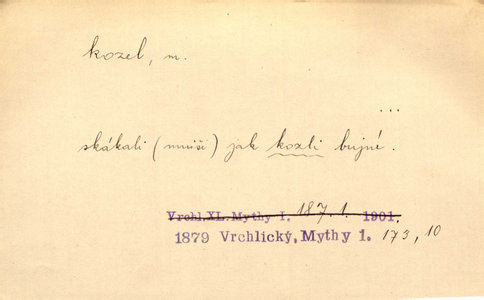 kozel, m.
...
skákali (mniši) jak kozli bujné.
Vrchl. XL. Mythy I. 187. 1. 1901.
1879 Vrchlický, Mythy 1. 173, 10